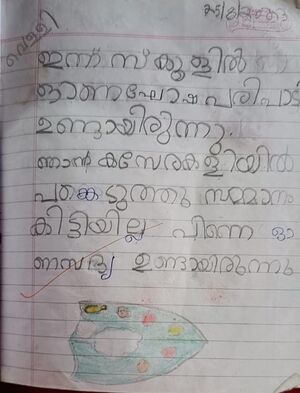 വെള്ളി
ഇന്ന് സ്കൂളിൽ
ഓണഘോഷ പരിപാടി
ഉണ്ടായിരുന്നു.
ഞാൻ കസേരകളിയിൽ
പങ്കെടുത്തു സമ്മാനം
കിട്ടിയില്ല പിന്നെ ഓ
ണസദ്യ ഉണ്ടായിരുന്നു